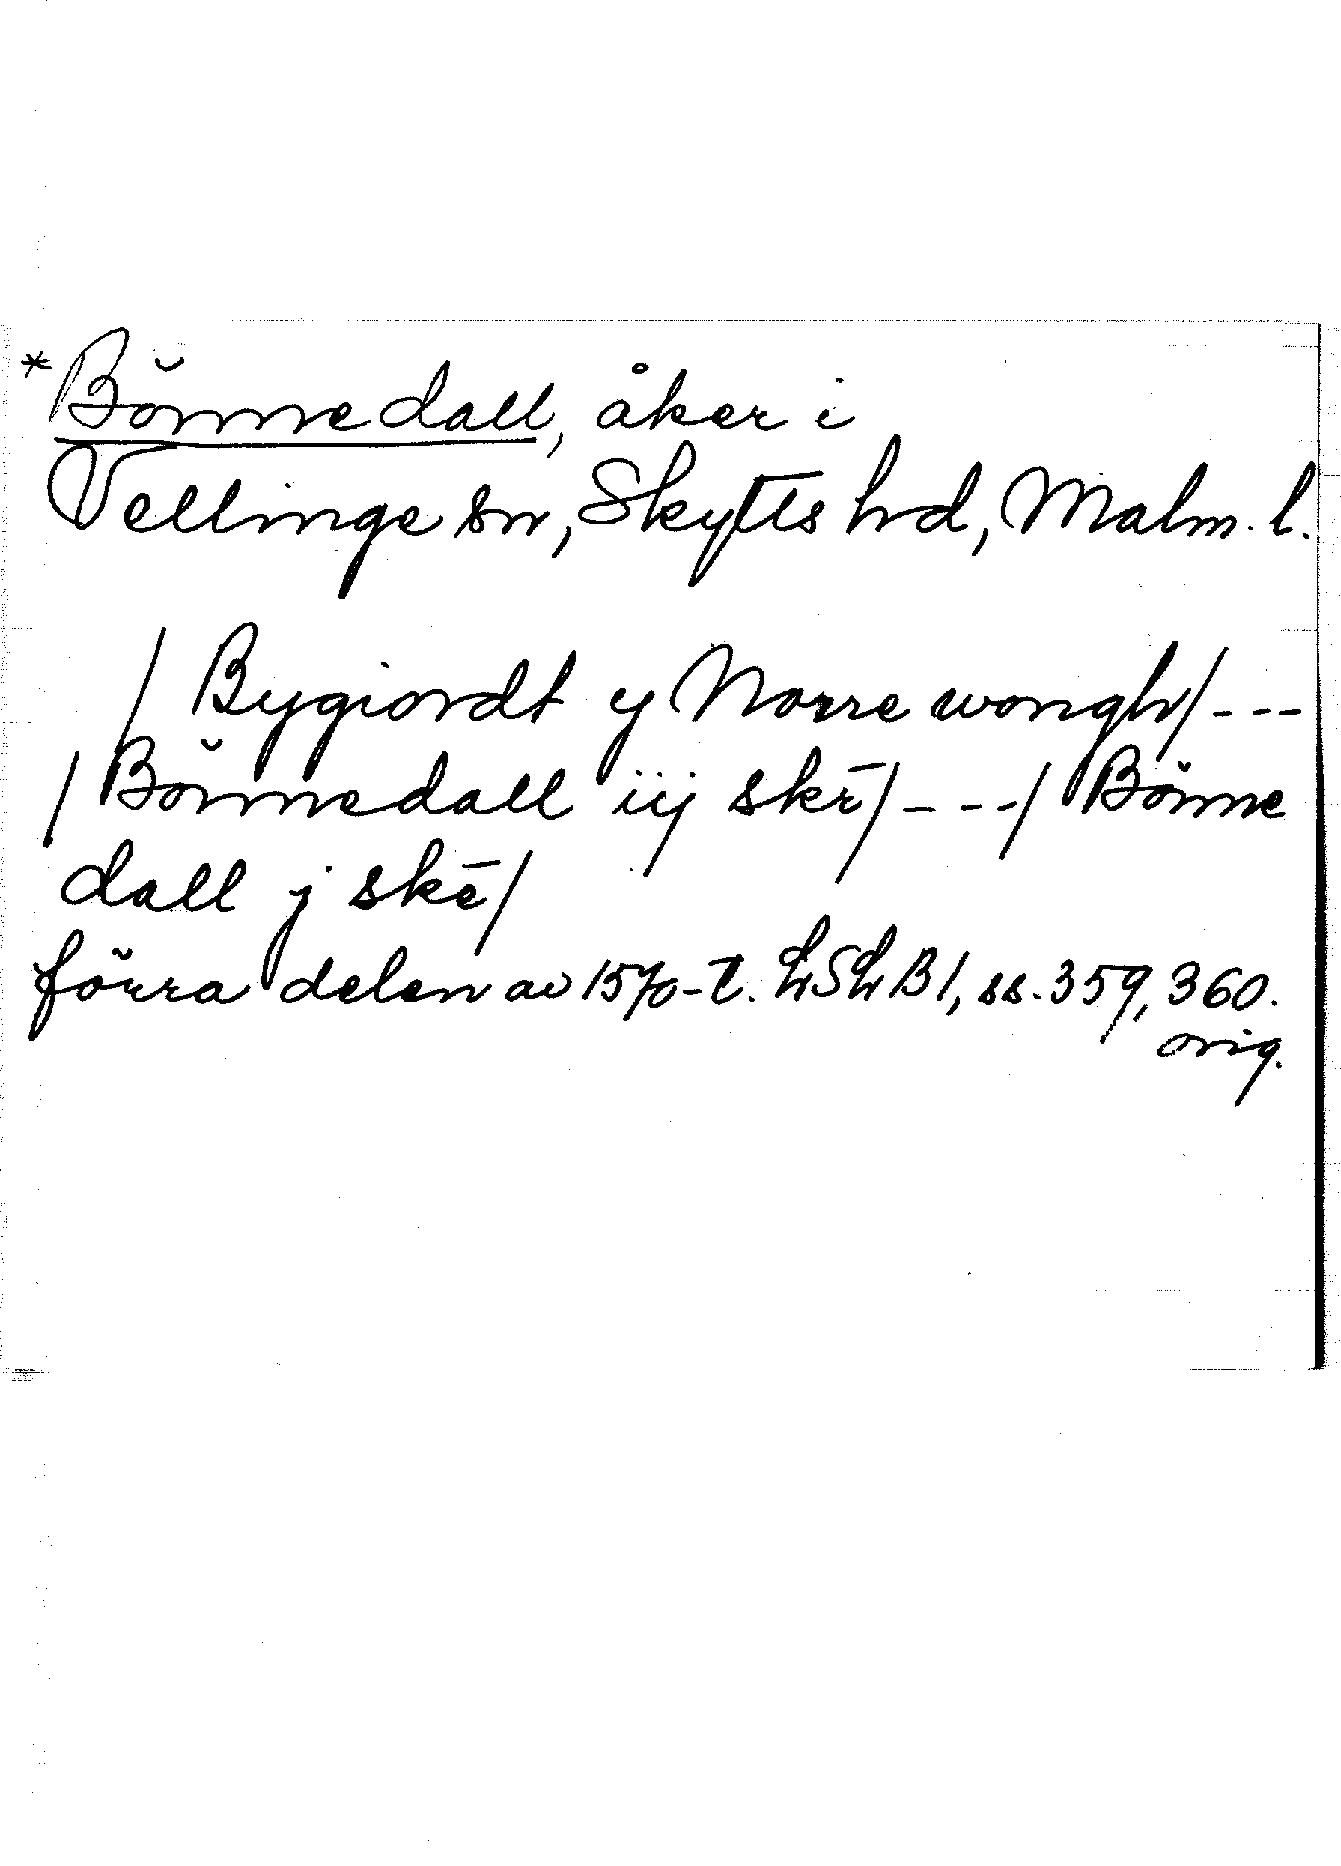 *Bönnedall, åker i
Vellinge sn, Skytts hd, Malm. l.
/ Bygiordt y Norre wongh/---
/Bönnedall iij skē/---/Bönne
dall j skē/
förra delen av 1570-t. LSLB1, ss. 359, 360.
orig.